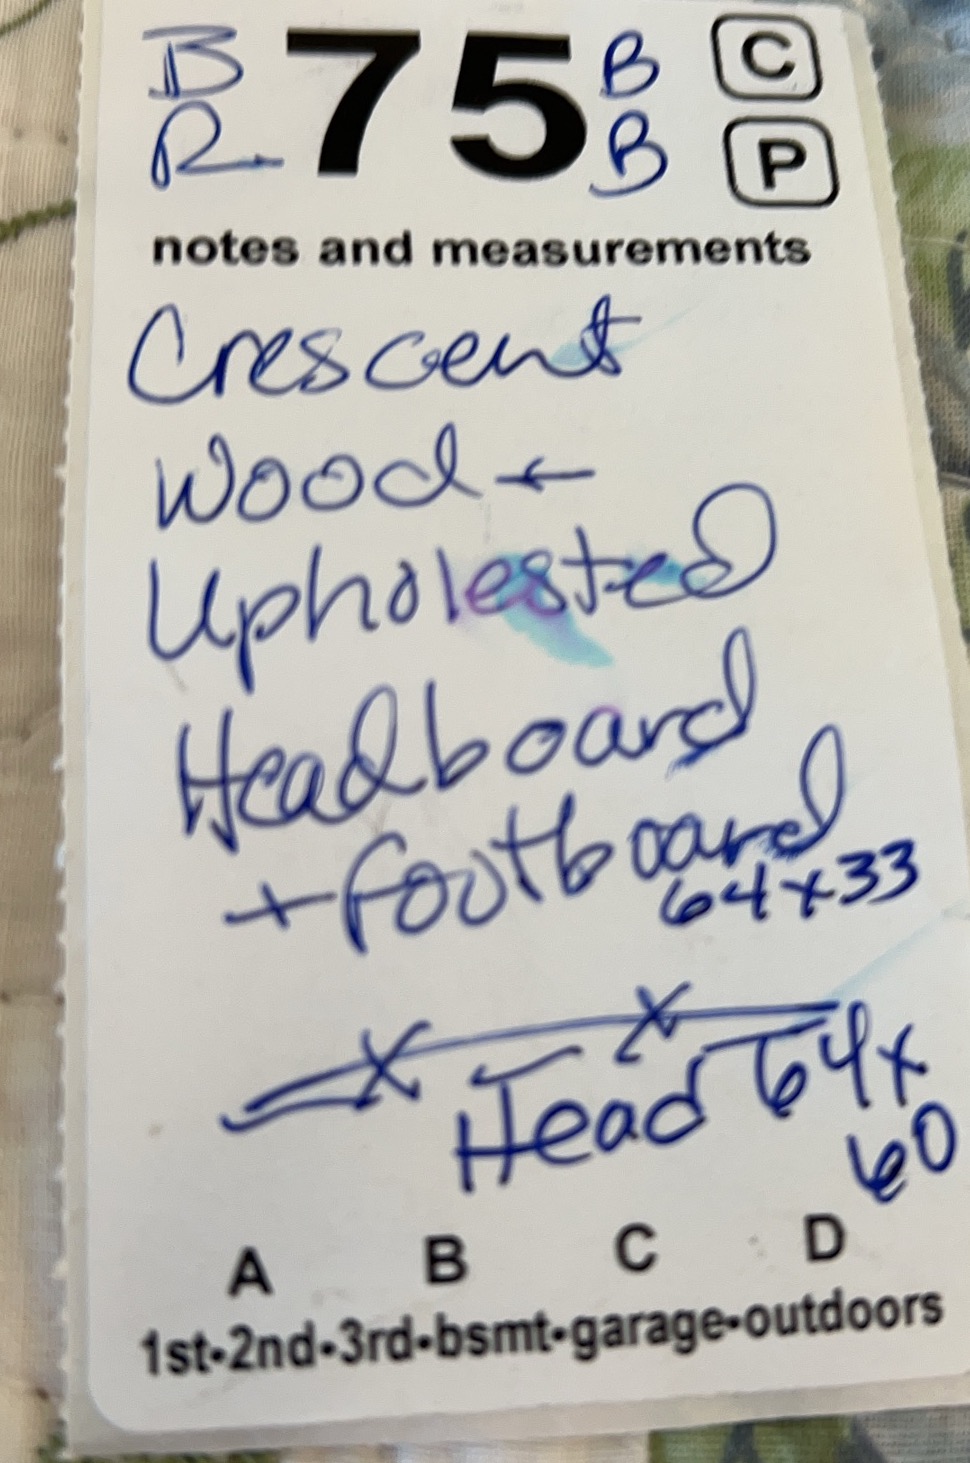 B 75 B C
R B P
notes and measurements
Crescent
Wood ←
Upholested
Headboard
+ Footboard
64x33
Head 64x
60
A B C D
1st•2nd•3rd•bsmt•garage•outdoors